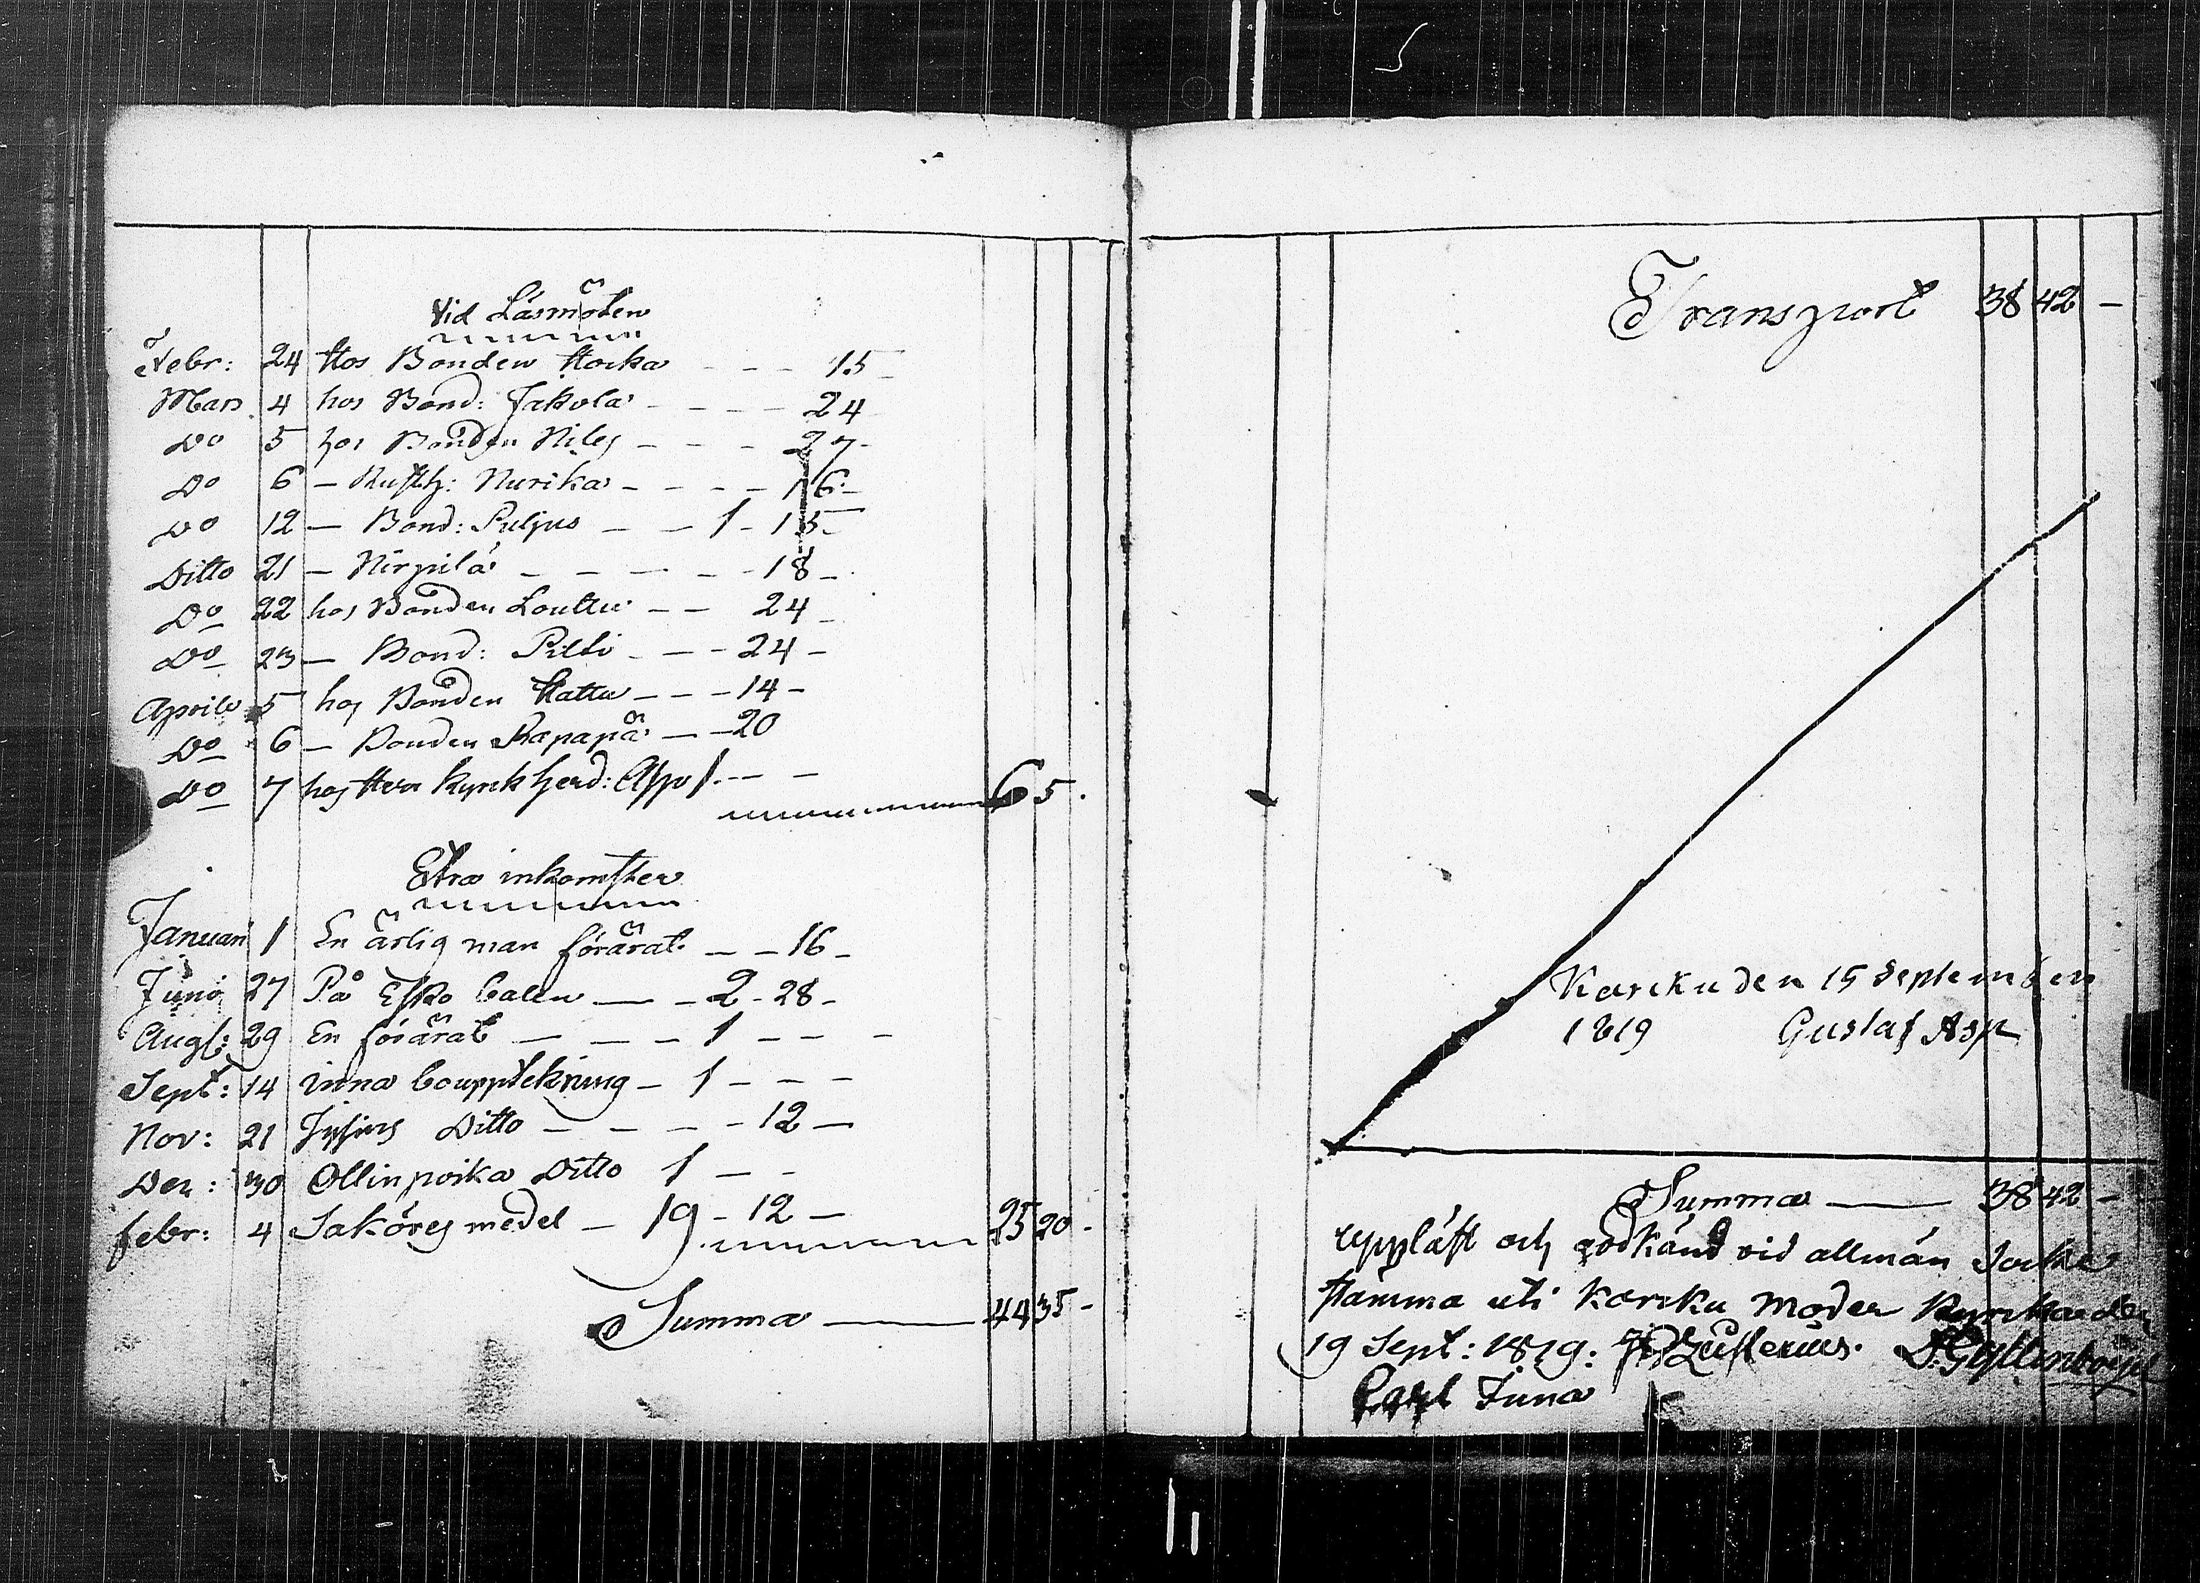 Vid Läsmöten
Febr: 24 Hos Bonden Hocka - - - 15 -
Mars 4 hos Bond: Jakola - - - - 24
Do 5 hos Bonden Niley - - - 27 -
Do 6 - Rusth: Nurika - - - - 16 -
Do 12 - Bond: Puljus - - 1 - 15 -
Ditto 21 - Nirpilä - - - - - 18 -
Do 22 hos Bonden Louttu - - 24 -
Do 23 - Bond: Pilti - - - 24 -
Aprilis 5 hos Bonden Hattu - - - 14 -
Do 6 - Bonden Rapapä - - 20
Do 7 hos Herr Kyrkherd: 1 - - - 6 5 -
Extra inkomster
Januari 1 En ärlig man förärat - - 16 -
Juni 27 På Esko Calen - - 2 - 28 -
Augt: 29 En förärat - - - - 1 - - -
Sept: 14 inna bouppteckning - 1 - - -
Nov: 21 Ditto - - - - 12 -
Dec: 30 Ollinpoika Ditto 1 - -
febr: 4 Saköres medel - 19 - 12 - 25 20 -
Summa - 44 35 -
Transport 38 42 -
Karcku den 15 September
1819 Gustaf Asp
Summa - 38 42 -
Uppläst och godkänd vid allmän Socke
stämma uti Karcku Moder Kyrcka den
19 Sept: 1819: D. Gyllenbögel
Carl Juna